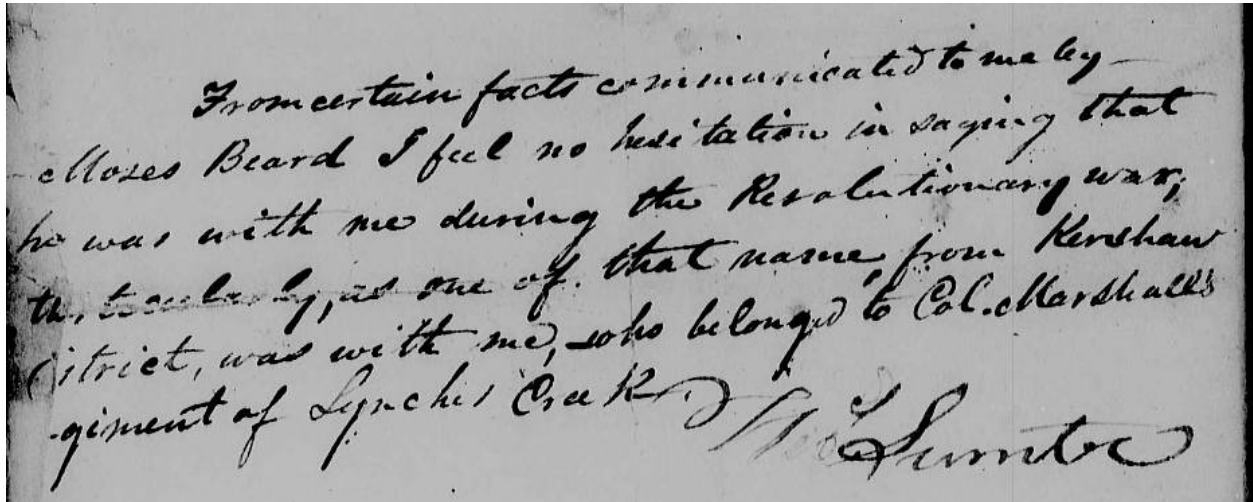 From certain facts communicated to me by
Moses Beard I feel no hesitation in saying that
he was with me during the Revolutionary war,
as one of that name, from Kershaw
istrict, was with me, who belonged to Col. Marshall's
-giment of Lynches Creek
Tho Sumter